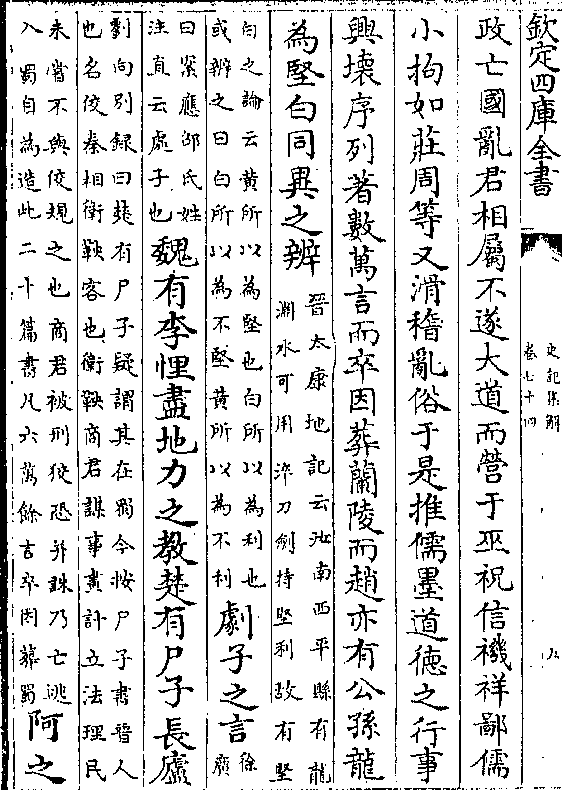 欽定四庫全書
史記集解
卷七十四
九
政亡國亂君相屬不遂大道而營于巫祝信禨祥鄙儒
小拘如莊周等又滑稽亂俗于是推儒墨道德之行事
興壞序列著數萬言而卒因葬蘭陵而趙亦有公孫龍
為堅白同異之辨
晉太康地記云汝南西平縣有龍
淵水可用淬刀劍持堅利故有堅
白之論云黄所以為堅也白所以為利也
或辨之曰白所以為不堅黄所以為不利
劇子之言
徐
廣
曰案應邵氏姓
注直云處子也
魏有李悝盡地力之教楚有尸子長廬
劉向别録曰楚有尸子疑謂其在蜀今按尸子書晉人
也名佼秦相衛鞅客也衛鞅商君謀事畫計立法理民
未嘗不與佼規之也商君被刑佼恐并誅乃亡逃
入蜀自為造此二十篇書凡六萬餘言卒因葬蜀
阿之